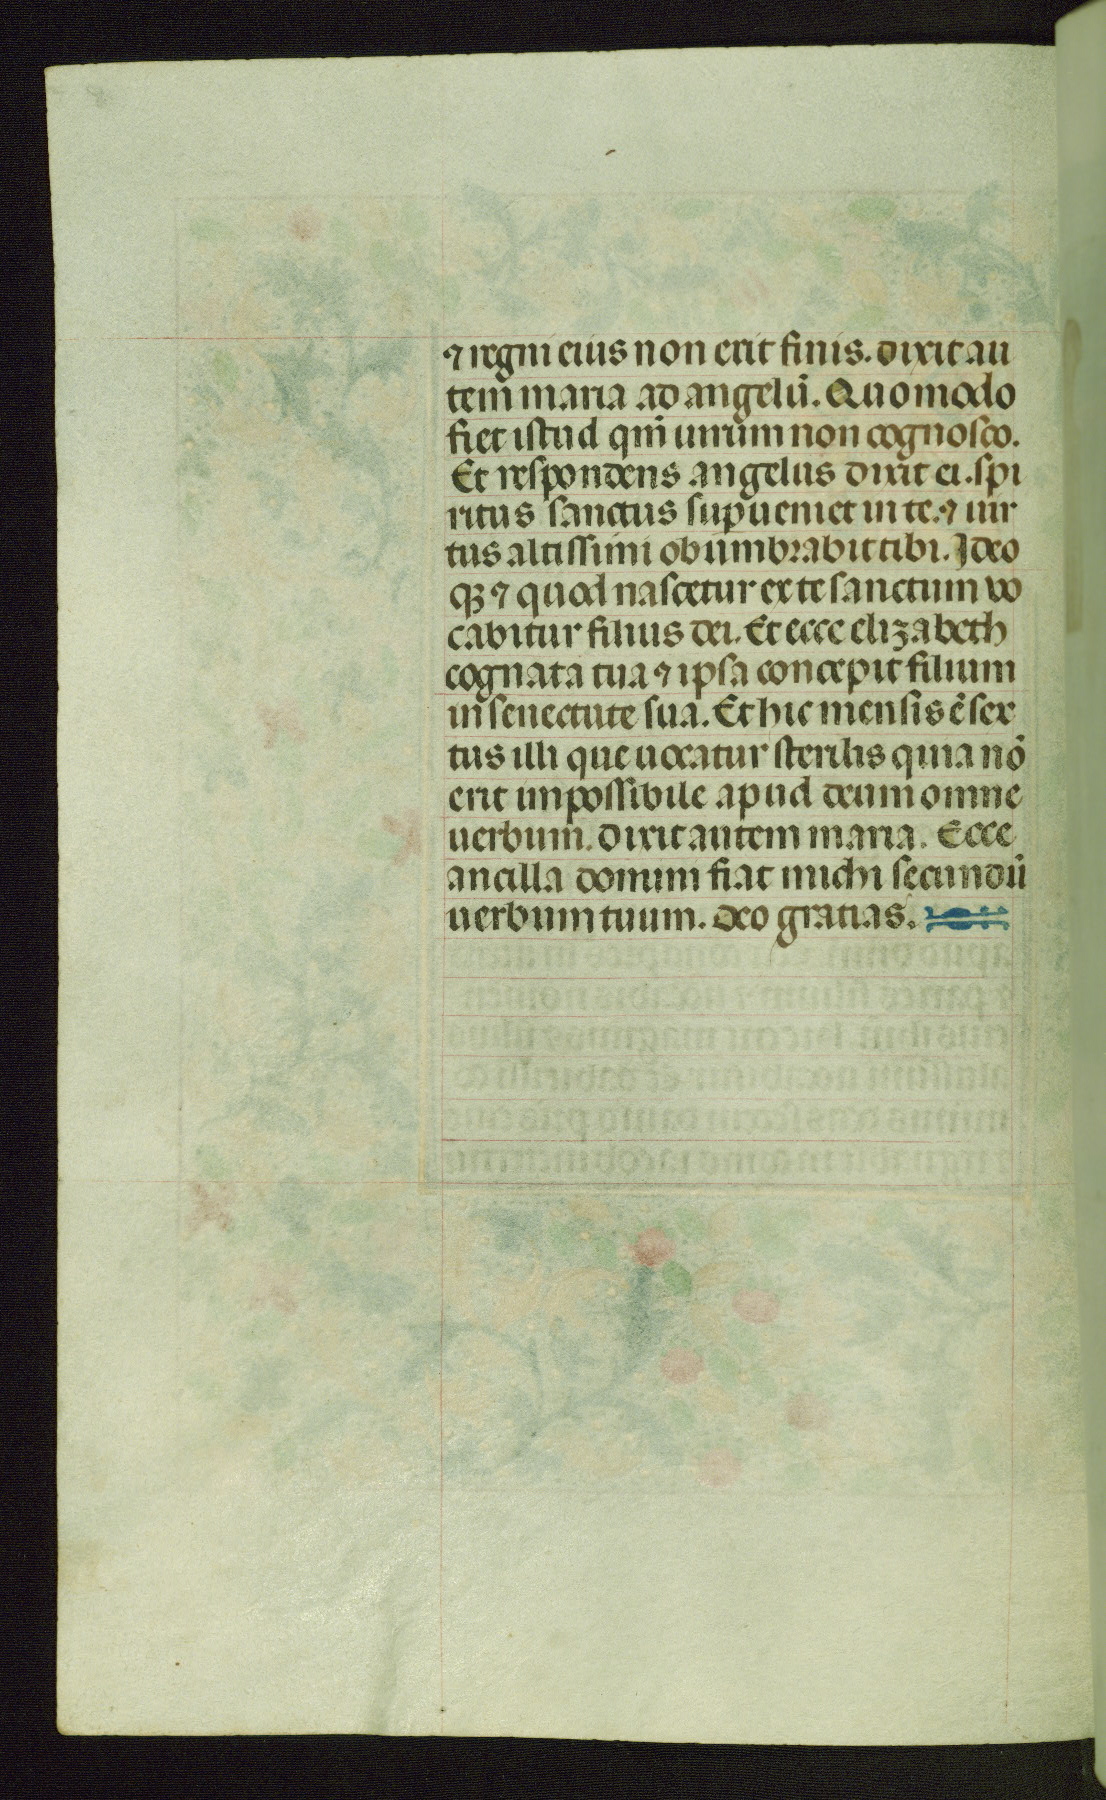 ⁊ regni eius non erit finis. dixit au
tem maria ad angelū. Quomodo
fiet istud qm̄ uirum non cognosco.
Et respondens angelus dixit ei. spi
ritus sanctus supueniet in te. ⁊ uir
tus altissimi obumbrabit tibi. Ideo
qꝫ ⁊ quod nascetur ex te sanctum vo
cabitur filius dei. Et ecce elizabeth
cognata tua ⁊ ipsa concepit filium
in senectute sua. Et hic mensis ē sex
tus illi que uocatur sterilis quia nō
erit impossibile apud deum omne
uerbum. dixit autem maria. Ecce
ancilla domini fiat michi secundū
uerbum tuum. deo gratias.